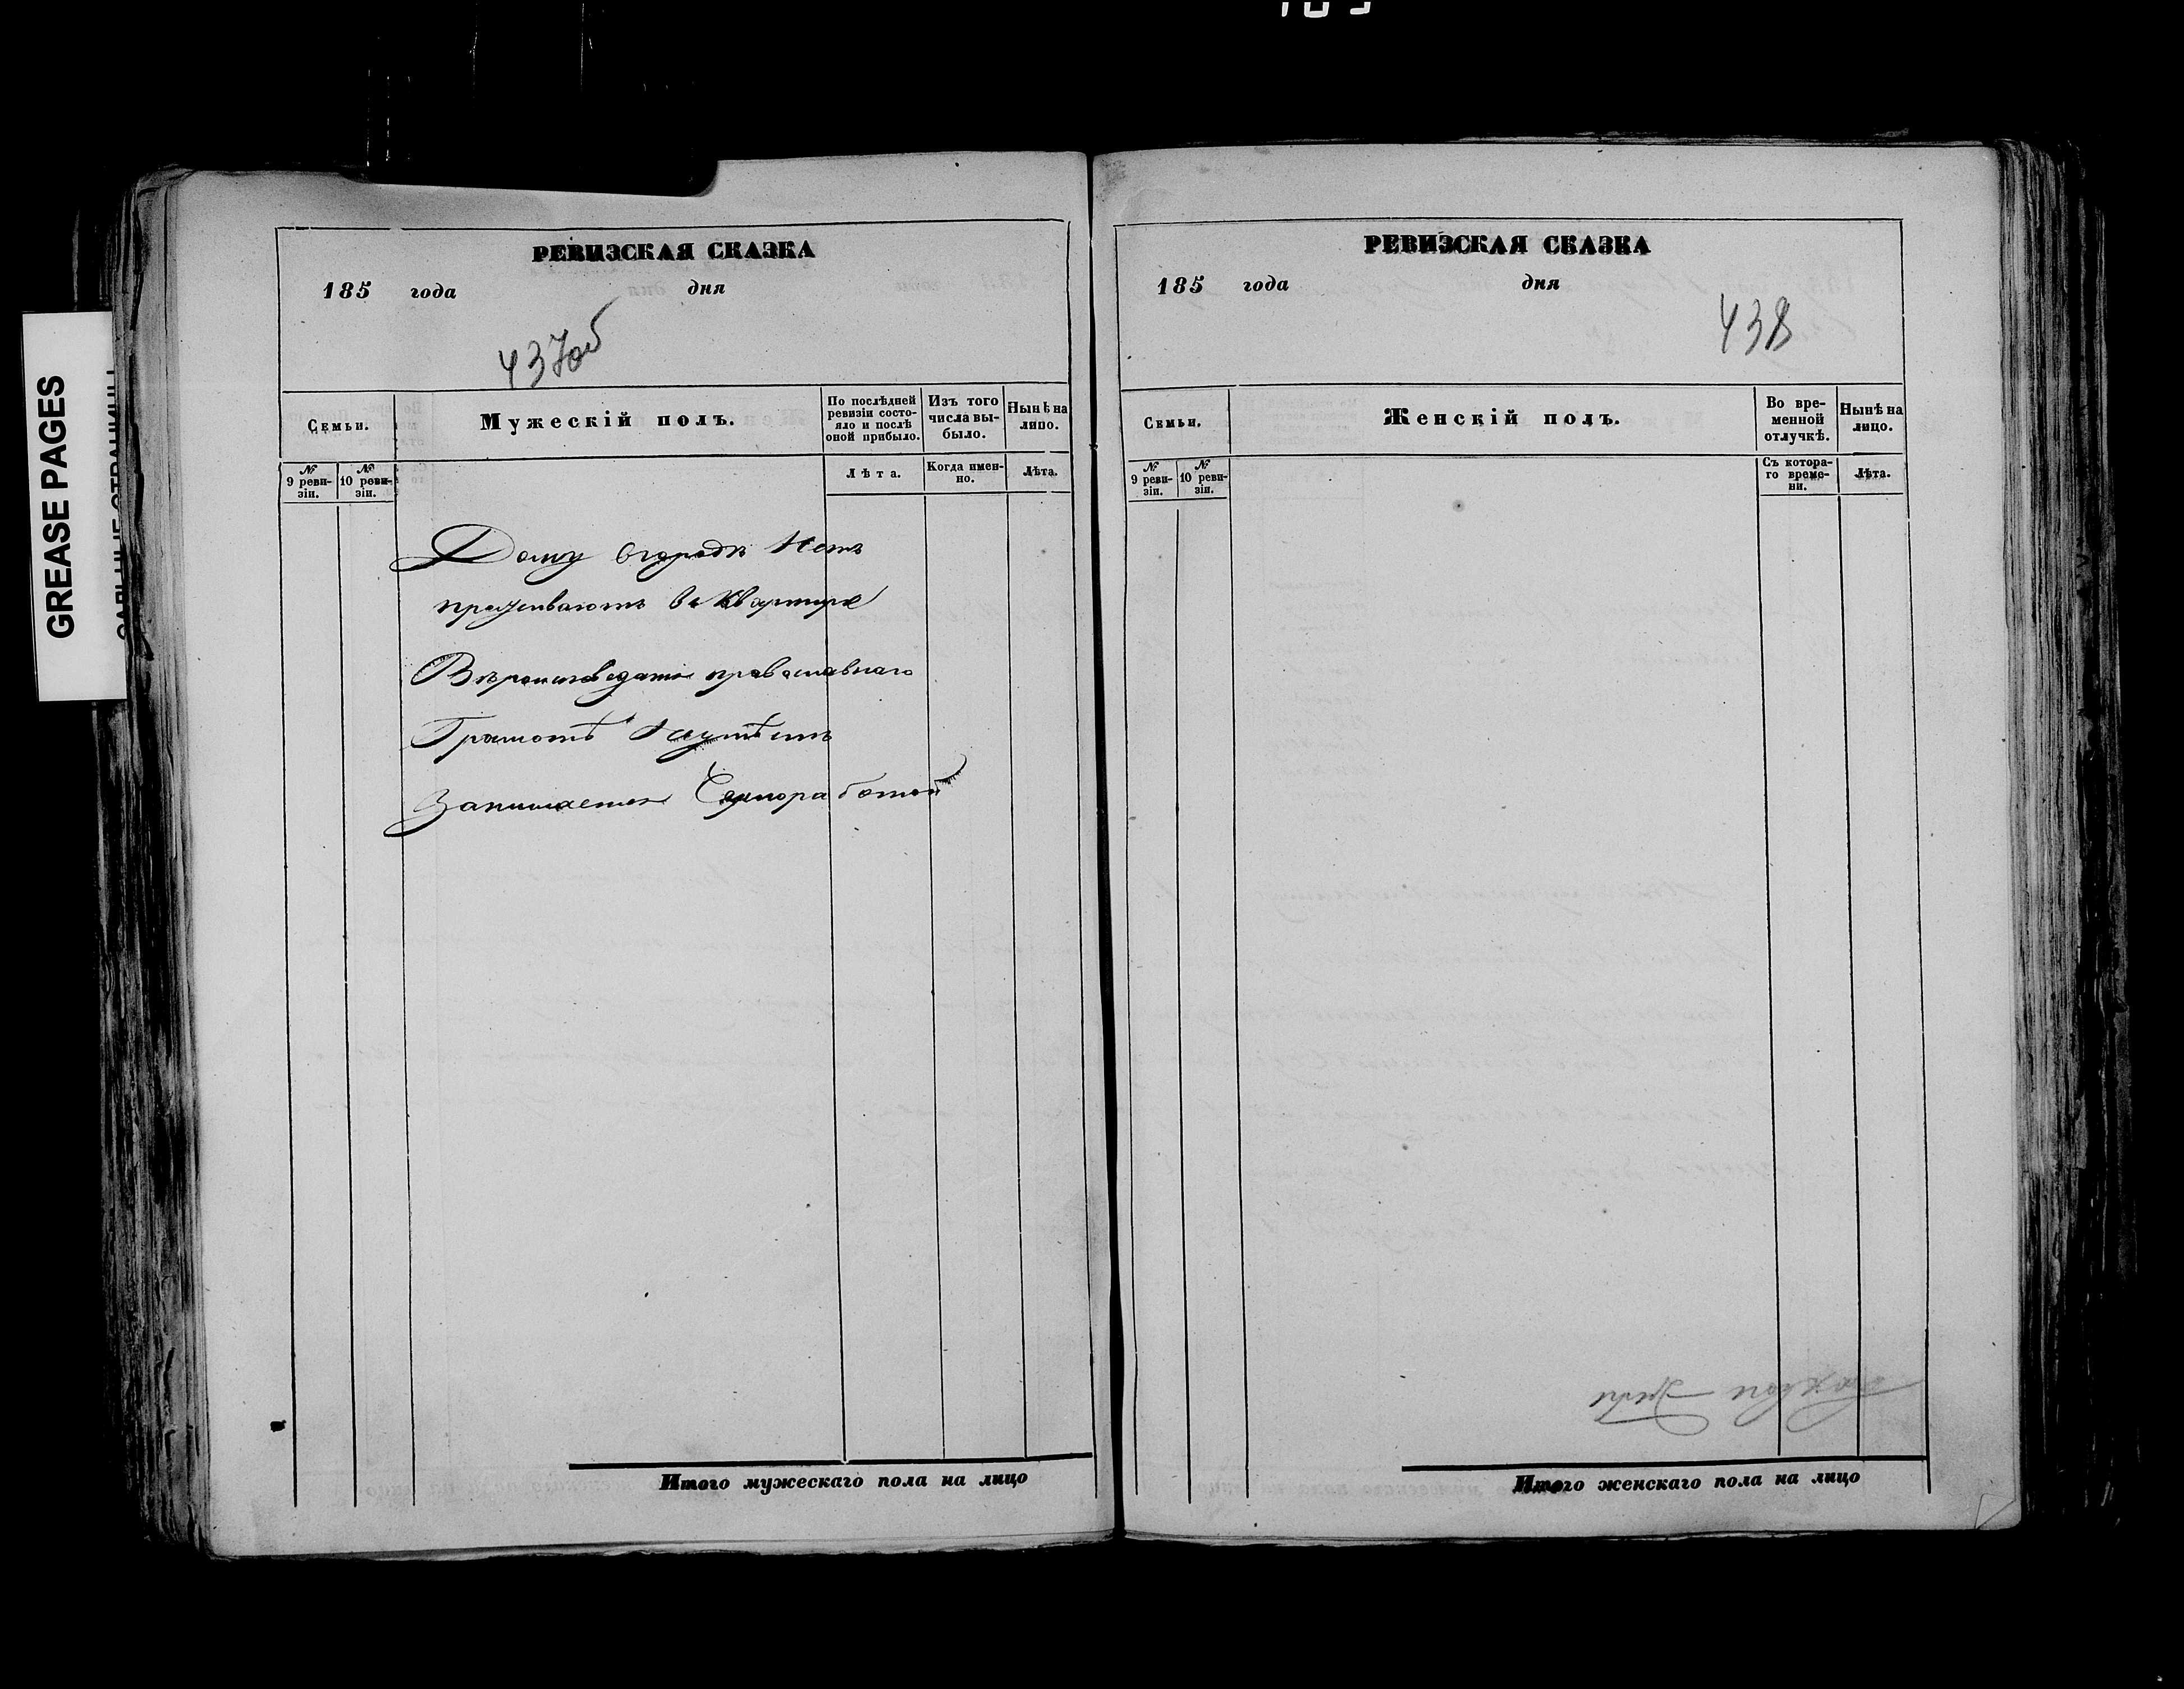 GREASE PAGES
РЕВИЗСКАЯ СКАЗКА
185 года дня
437об
Семьи.
Мужескій полъ.
По послѣдней ревизіи состо-
яло и послѣ
оной прибыло.
Изъ того
числа вы-
было.
Нынѣ на
лицо.
№
9 реви-
зіи.
№
10 реви-
зіи.
Лѣта.
Когда имен-
но.
Лѣта.
Дому вгородѣ Нетъ
проживаютъ в Квартире
православнаго
Грамотѣ Неумѣетъ
Занимается
Итого мужескаго пола на лицо
РЕВИЗСКАЯ СКАЗКА
185 года дня
438
Семьи.
Женскій полъ.
Во вре-
менной
отлучкѣ.
Нынѣ на
лицо.
№
9 реви-
зіи.
№
10 реви-
зіи.
Съ котора-
го време-
ни.
Лѣта.
Итого женскаго пола на лицо